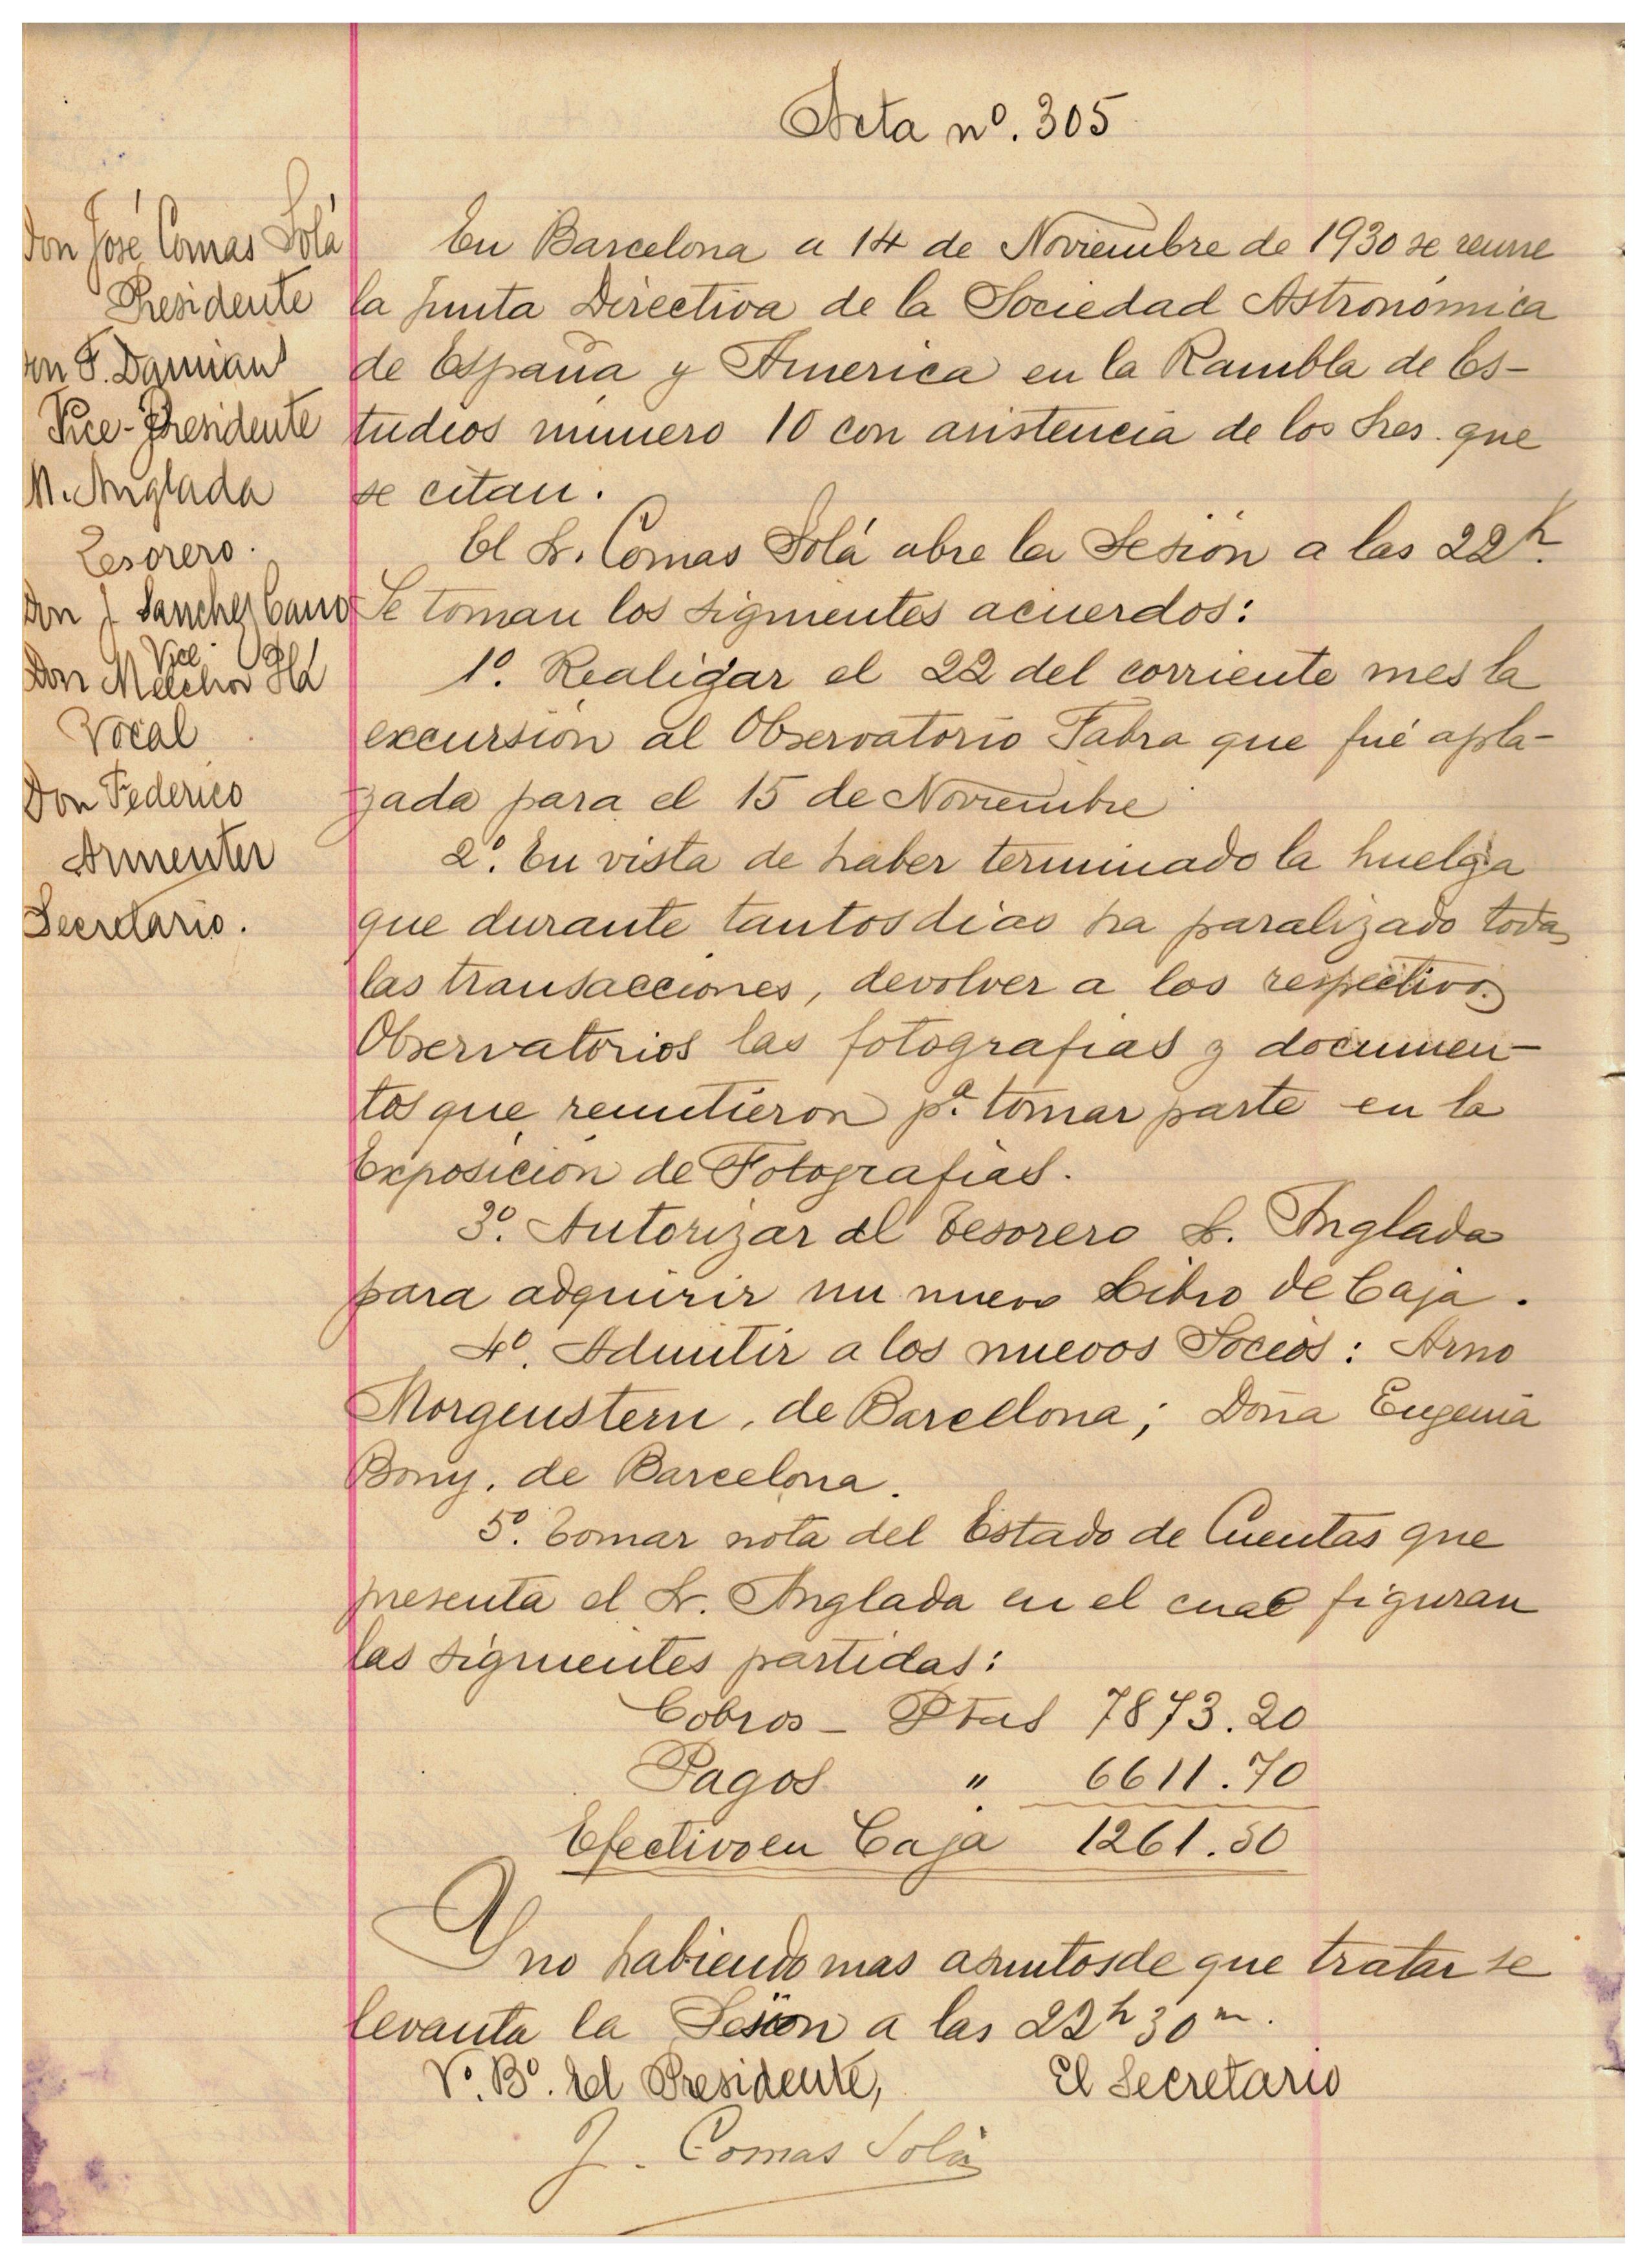 Acta nº. 305
Don José Comas Solá
Presidente
Don F. Damians
Vice-Presidente
M. Anglada
Tesorero.
Don J Sanchez Cano
Vice-
Don Melchor Plá
Vocal
Don Federico
Armenter
Secretario.
En Barcelona a 14 de Noviembre de 1930 se reune
la Junta Directiva de la Sociedad Astronómica
de España y America en la Rambla de Es-
tudios número 10 con asistencia de los Sres. que
se citan.
El Sr. Comas Solá abre la Sesión a las 22h.
Se toman los siguientes acuerdos:
1º. Realizar el 22 del corriente mes la
excursión al Observatorio Fabra que fué apla-
zada para el 15 de Noviembre
2º. En vista de haber terminado la huelga
que durante tantos dias ha paralizado todas
las transacciones, devolver a los respectivos
Observatorios las fotografias y documen-
tos que remitieron pª. tomar parte en la
Exposición de Fotografias.
3º. Autorizar al Tesorero Sr. Anglada
para adquirir un nuevo Libro de Caja.
4º. Admitir a los nuevos Socios: Arno
Morgenstern, de Barcelona; Doña Eugenia
Bony, de Barcelona.
5º. Tomar nota del Estado de Cuentas que
presenta el Sr. Anglada en el cual figuran
las siguientes partidas:
Cobros - Ptas 7873.20
Pagos " 6611.70
Efectivo en Caja 1261.50
Y no habiendo mas asuntos de que tratar se
levanta la Sesión a las 22h 30m.
Vº. Bº. El Presidente, El Secretario
J. Comas Solá